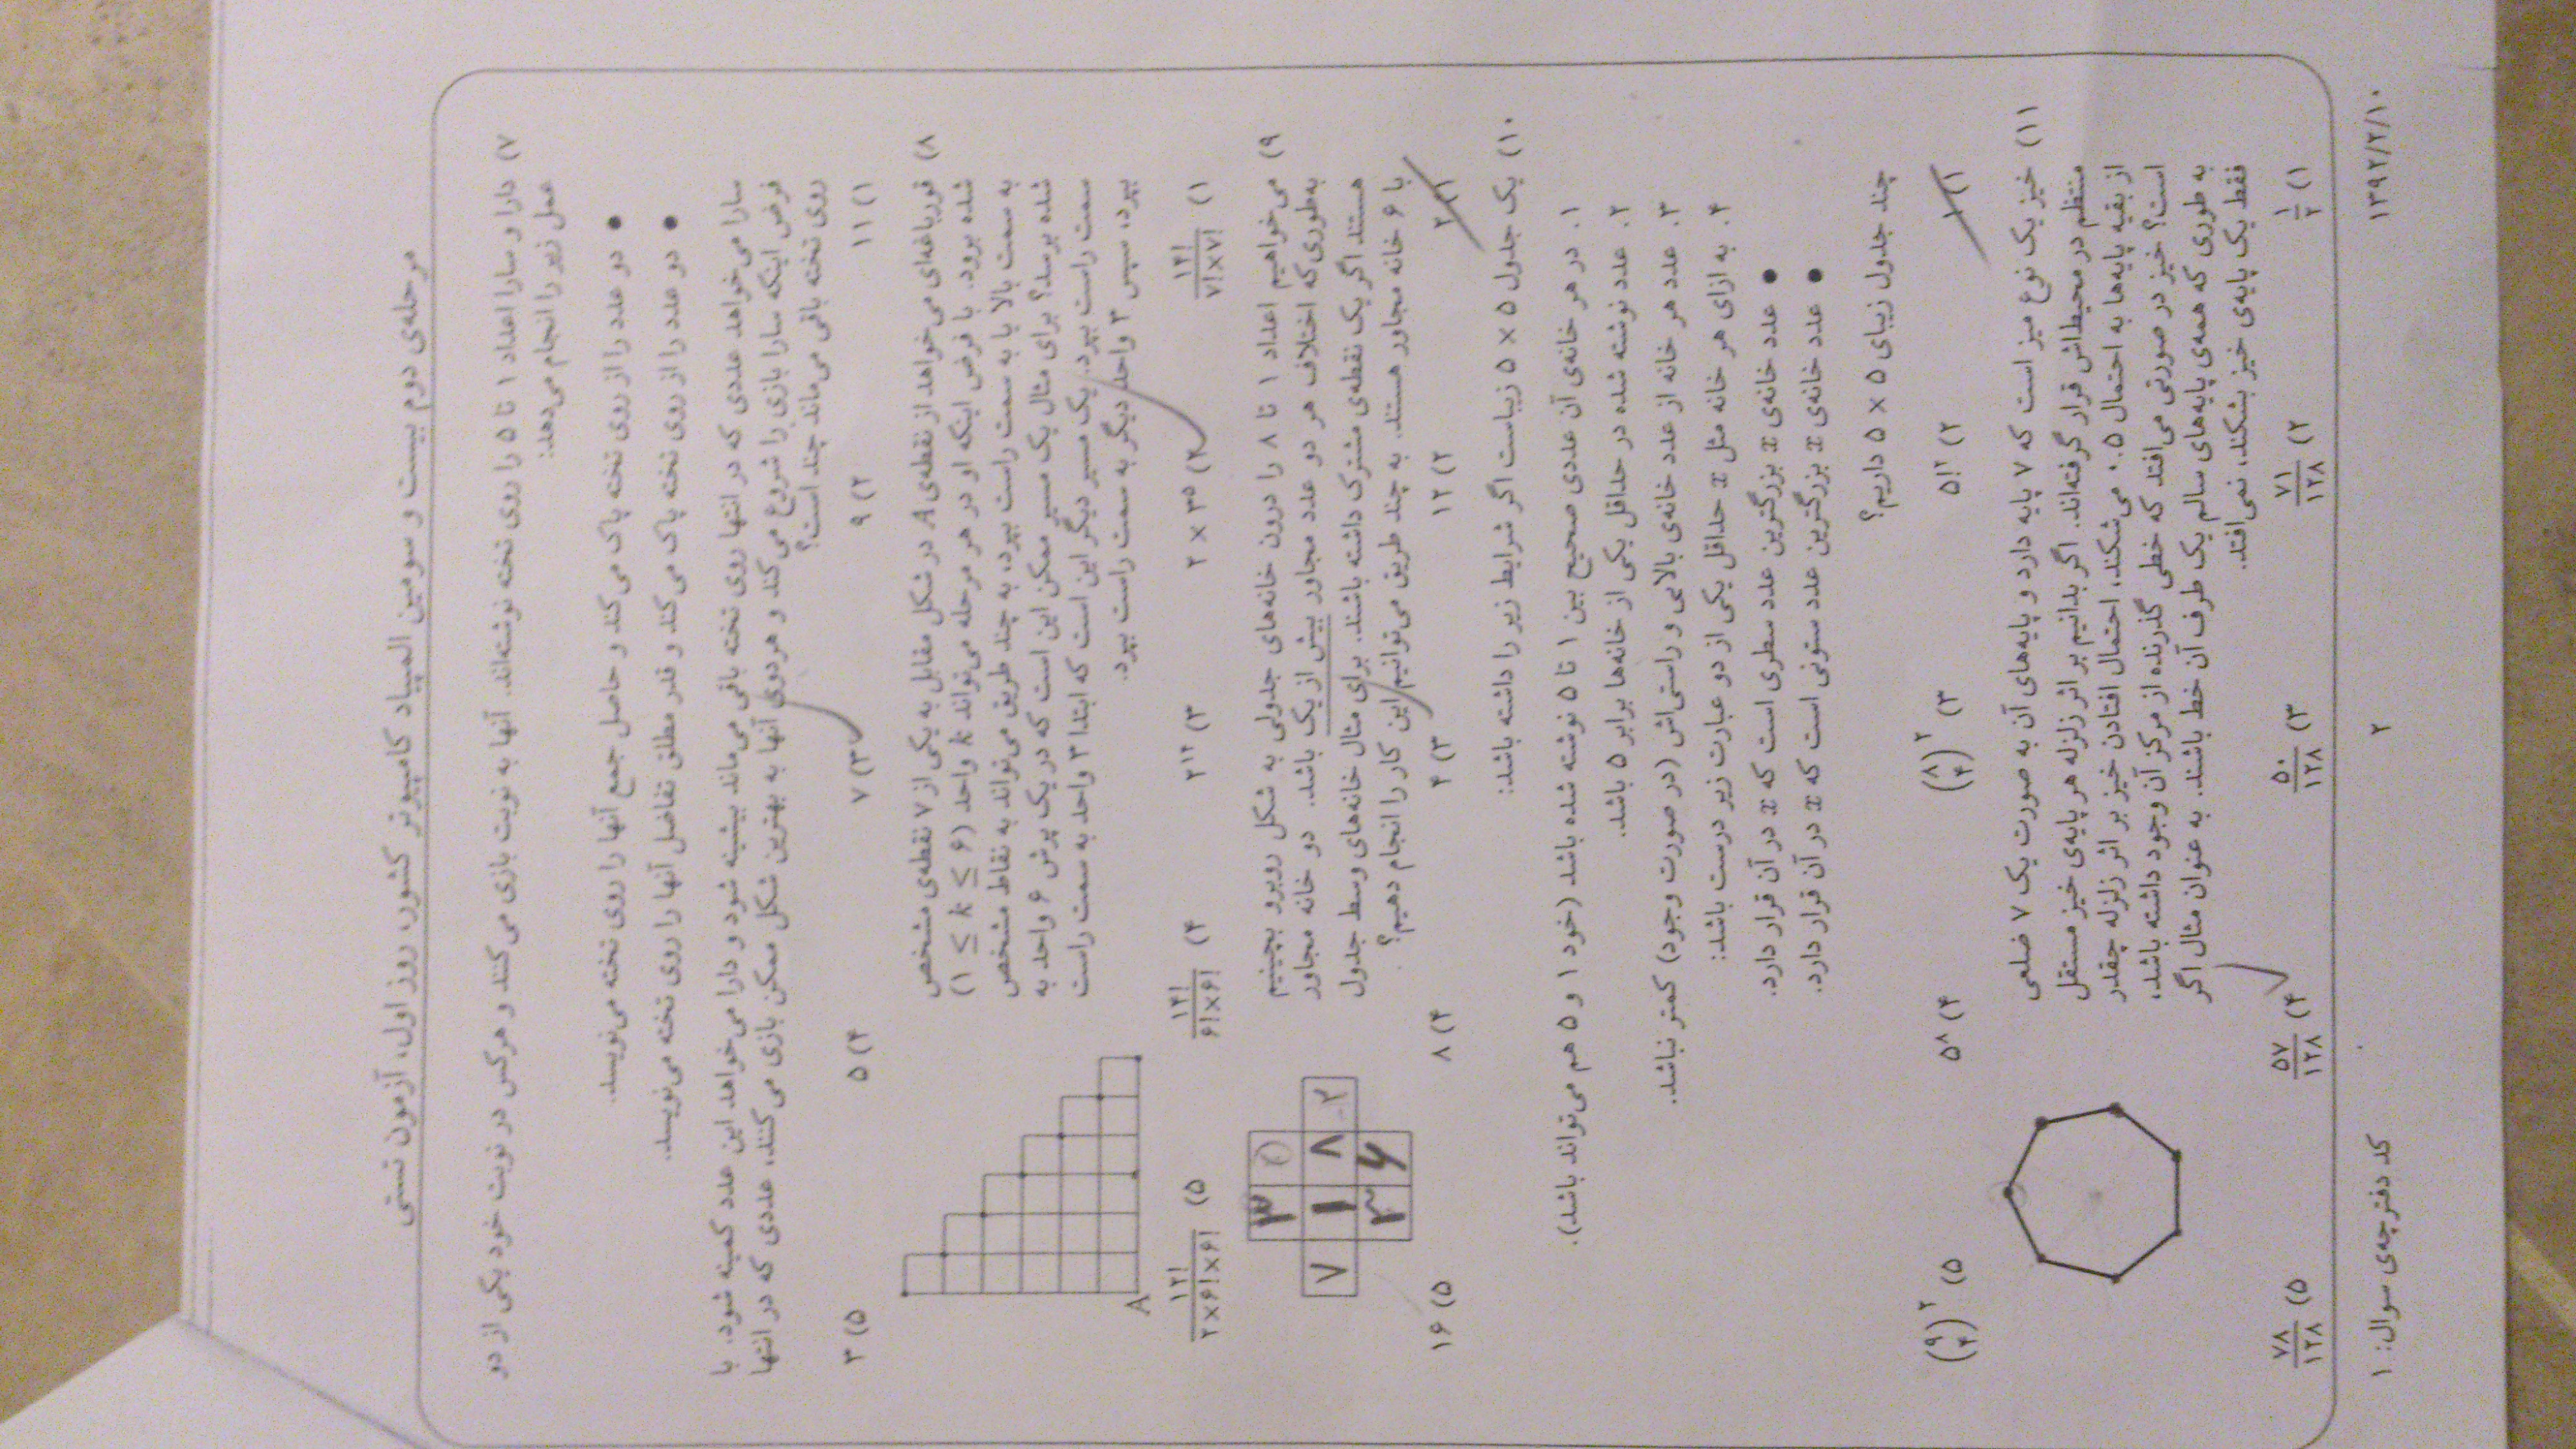 مرحله‌ی دوم بیست و سومین المپیاد کامپیوتر کشور، روز اول، آزمون تستی
۷) دارا و سارا اعداد ۱ تا ۵ را روی تخته نوشته‌اند. آنها به نوبت بازی می‌کنند و هرکس در نوبت خود یکی از دو
عمل زیر را انجام می‌دهد:
• دو عدد را از روی تخته پاک می‌کند و حاصل جمع آنها را روی تخته می‌نویسد.
• دو عدد را از روی تخته پاک می‌کند و قدر مطلق تفاضل آنها را روی تخته می‌نویسد.
سارا می‌خواهد عددی که در انتها روی تخته باقی می‌ماند بیشینه شود و دارا می‌خواهد این عدد کمینه شود. با
فرض اینکه سارا بازی را شروع می‌کند و هردوی آنها به بهترین شکل ممکن بازی می‌کنند، عددی که در انتها
روی تخته باقی می‌ماند چند است؟
۱) ۱۱ ۲) ۹ ۳) ۷ ۴) ۵ ۵) ۳
۸) قورباغه‌ای می‌خواهد از نقطه‌ی A در شکل مقابل به یکی از ۷ نقطه‌ی مشخص
شده برود. با فرض اینکه او در هر مرحله می‌تواند k واحد (۱ ≤ k ≤ ۶)
به سمت بالا یا به سمت راست بپرد، به چند طریق می‌تواند به نقاط مشخص
شده برسد؟ برای مثال یک مسیر ممکن این است که در یک پرش ۶ واحد به
سمت راست بپرد. یک مسیر دیگر این است که ابتدا ۳ واحد به سمت راست
بپرد، سپس ۳ واحد دیگر به سمت راست بپرد.
A
۱) ۱۴!/۷!×۷! ۲) ۲ × ۳^۵ ۳) ۲^۱۲ ۴) ۱۴!/۶!×۶! ۵) ۱۲!/۲×۶!×۶!
۹) می‌خواهیم اعداد ۱ تا ۸ را درون خانه‌های جدولی به شکل روبرو بچینیم
به‌طوری‌که اختلاف هر دو عدد مجاور بیش از یک باشد. دو خانه مجاور
هستند اگر یک نقطه‌ی مشترک داشته باشند. برای مثال خانه‌های وسط جدول
با ۶ خانه مجاور هستند. به چند طریق می‌توانیم این کار را انجام دهیم؟
۷ ۱ ۸ ۲
۱) ۲ ۲) ۱۲ ۳) ۴ ۴) ۸ ۵) ۱۶
۱۰) یک جدول ۵ × ۵ زیباست اگر شرایط زیر را داشته باشد:
۱. در هر خانه‌ی آن عددی صحیح بین ۱ تا ۵ نوشته شده باشد (خود ۱ و ۵ هم می‌تواند باشد).
۲. عدد نوشته شده در حداقل یکی از خانه‌ها برابر ۵ باشد.
۳. عدد هر خانه از عدد خانه‌ی بالایی و راستی‌اش (در صورت وجود) کمتر نباشد.
۴. به ازای هر خانه مثل x حداقل یکی از دو عبارت زیر درست باشد:
• عدد خانه‌ی x بزرگترین عدد سطری است که x در آن قرار دارد.
• عدد خانه‌ی x بزرگترین عدد ستونی است که x در آن قرار دارد.
چند جدول زیبای ۵ × ۵ داریم؟
۱) ۱ ۲) ۵!^۲ ۳) (۸ ۴)^۲ ۴) ۵^۸ ۵) (۹ ۴)^۲
۱۱) خیز یک نوع میز است که ۷ پایه دارد و پایه‌های آن به صورت یک ۷ ضلعی
منتظم در محیط‌اش قرار گرفته‌اند. اگر بدانیم بر اثر زلزله هر پایه‌ی خیز مستقل
از بقیه پایه‌ها به احتمال ۰.۵ می‌شکند، احتمال افتادن خیز بر اثر زلزله چقدر
است؟ خیز در صورتی می‌افتد که خطی گذرنده از مرکز آن وجود داشته باشد،
به طوری که همه‌ی پایه‌های سالم یک طرف آن خط باشند. به عنوان مثال اگر
فقط یک پایه‌ی خیز بشکند، نمی‌افتد.
۱) ۱/۲ ۲) ۷۱/۱۲۸ ۳) ۵۰/۱۲۸ ۴) ۵۷/۱۲۸ ۵) ۷۸/۱۲۸
۱۳۹۲/۲/۱۰ ۲ کد دفترچه‌ی سوال: ۱